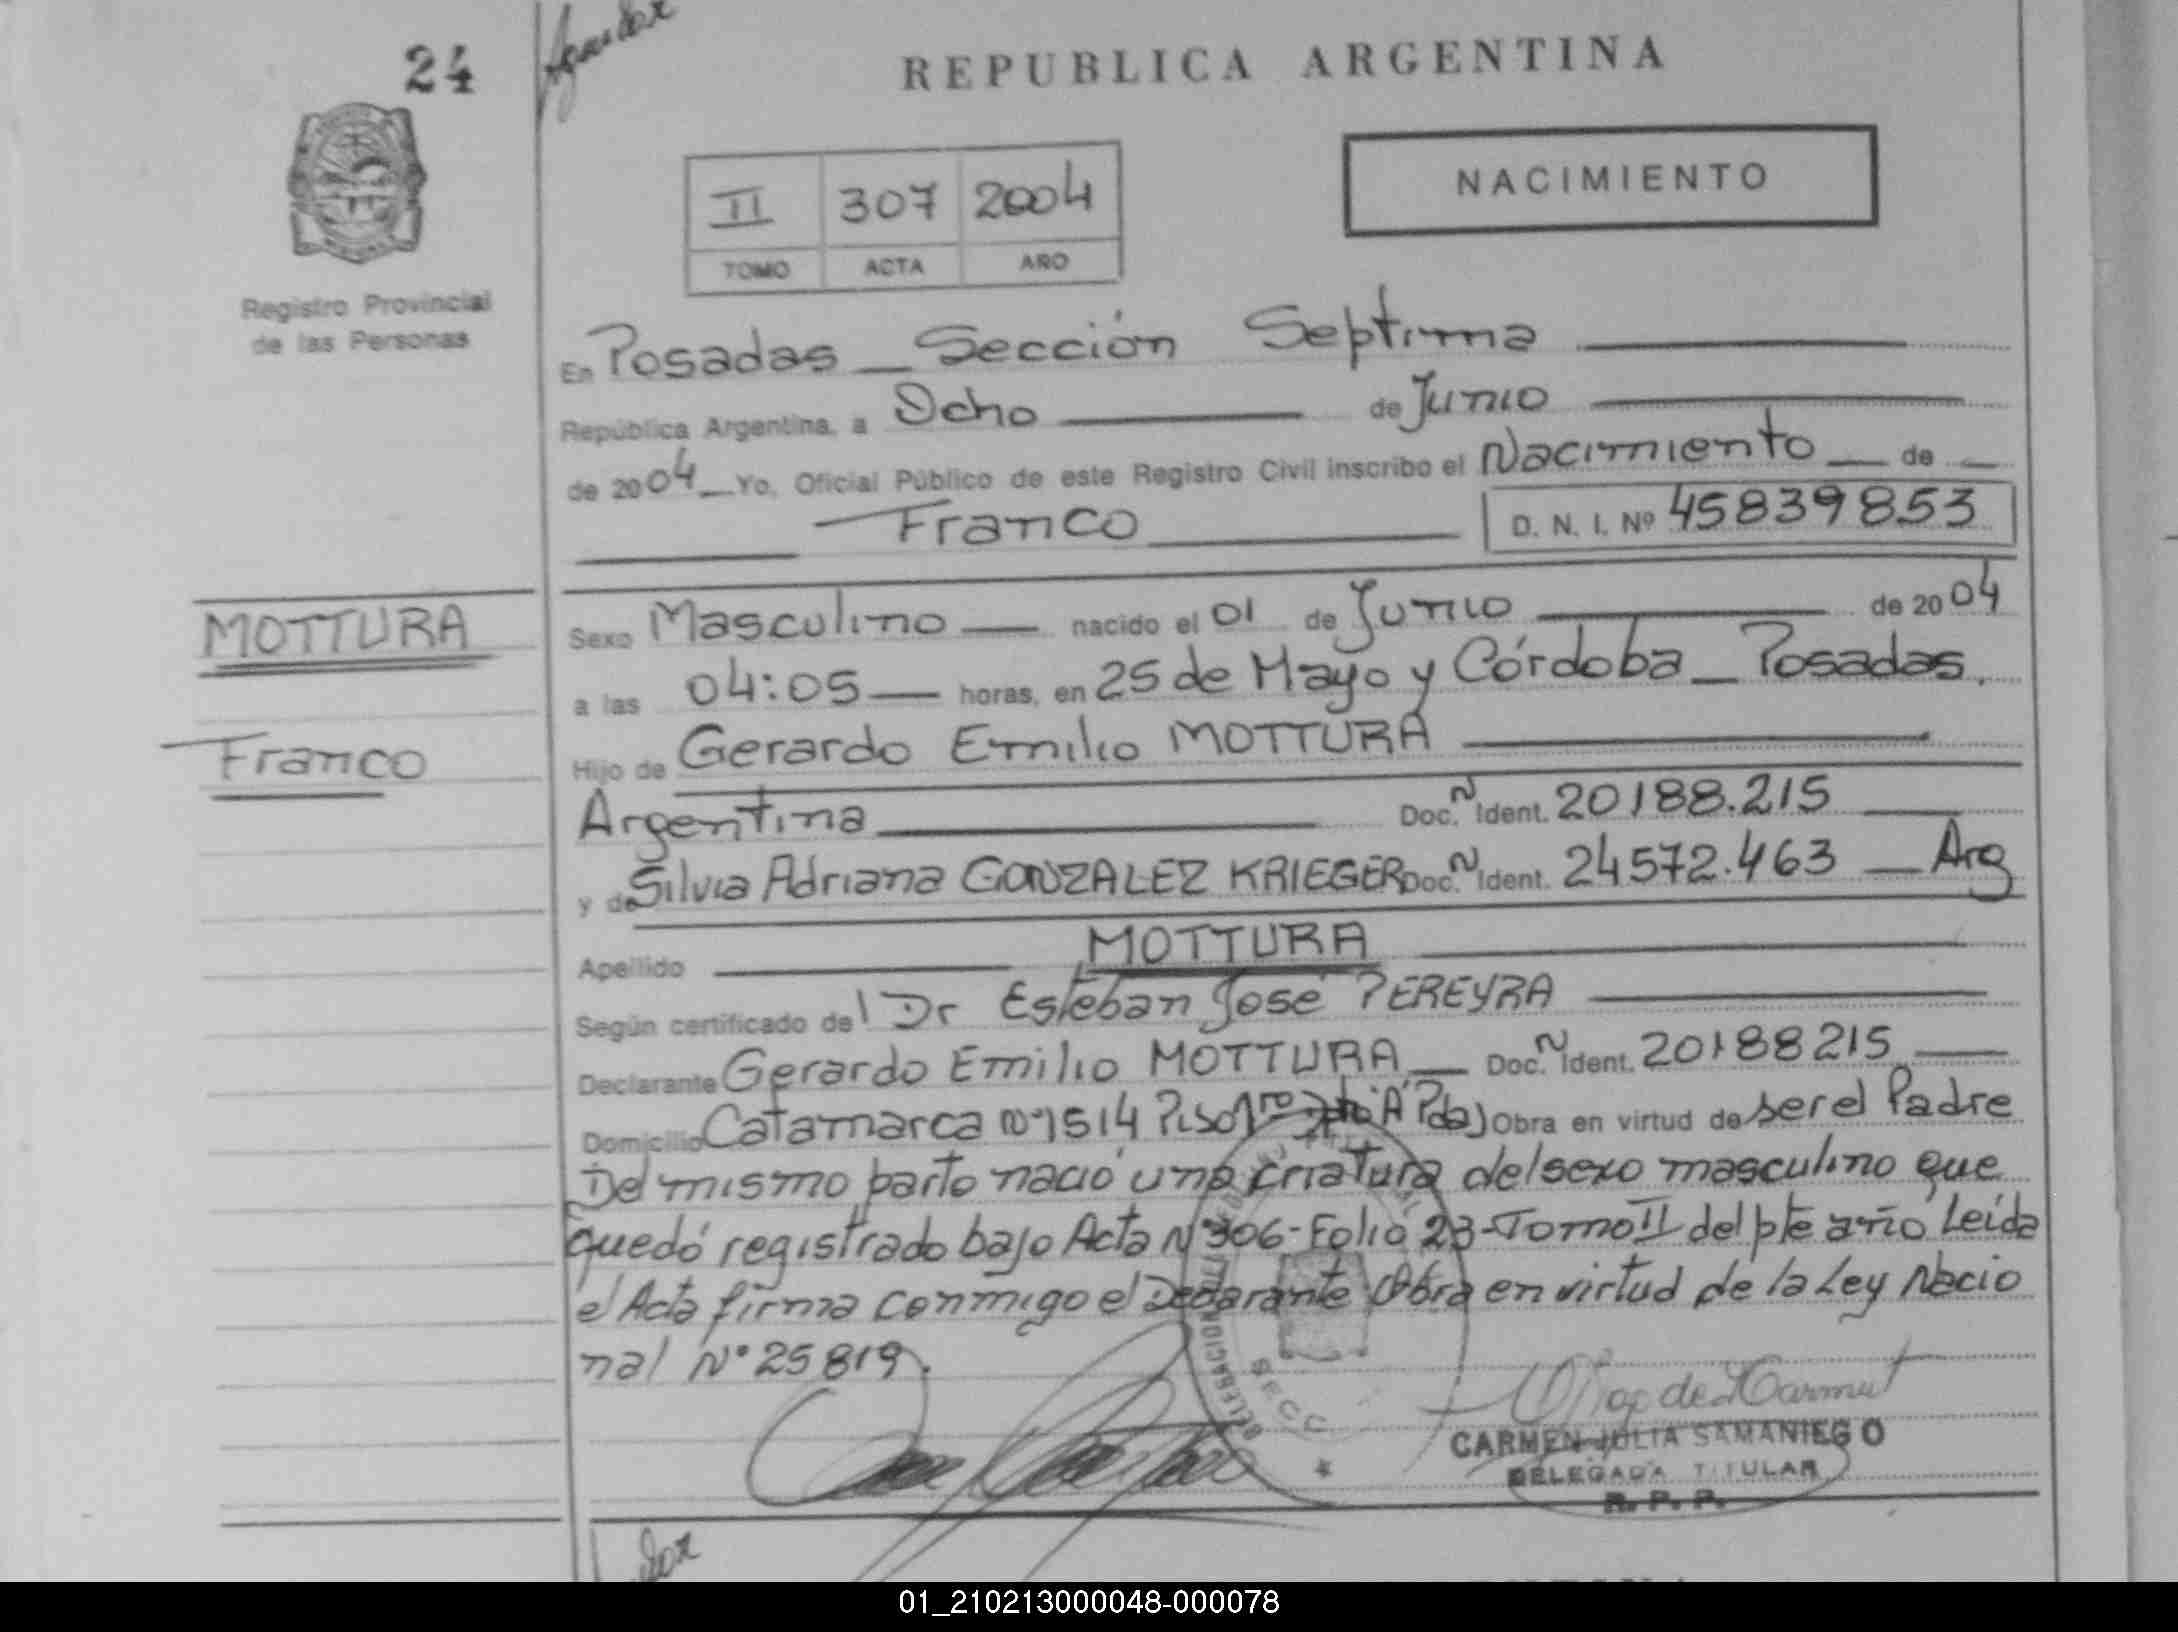 24
REPUBLICA ARGENTINA
NACIMIENTO
II 307 2004
TOMO ACTA AÑO
Registro Provincial
de las Personas
En Posadas _ Sección Septima
República Argentina, a Ocho de Junio
de 2004 _ Yo, Oficial Público de este Registro Civil inscribo el Nacimiento _ de _
Franco D. N. I. Nº 45839853
MOTTURA
Franco
Sexo Masculino _ nacido el 01 de Junio de 2004
a las 04:05 _ horas, en 25 de Mayo y Córdoba _ Posadas.
Hijo de Gerardo Emilio MOTTURA
Argentina Doc. Ident. 20188.215
y de Silvia Adriana GONZALEZ KRIEGER Doc. Ident. 24572.463 _ Arg
Apellido MOTTURA
Según certificado del Dr Esteban José PEREYRA
Declarante Gerardo Emilio MOTTURA _ Doc. Ident. 20188215
Domicilio Catamarca Nº 1514 Piso 1ro "A" Pdas Obra en virtud de ser el Padre
Del mismo parto nació una criatura del sexo masculino que
quedó registrado bajo Acta Nº 306-Folio 23-Tomo II del pte año Leída
el Acta firma conmigo el Declarante Obra en virtud de la Ley Nacio
nal Nº 25819.
SECC
CARMEN JULIA SAMANIEGO
DELEGADA TITULAR
R. P. P.
01_210213000048-000078